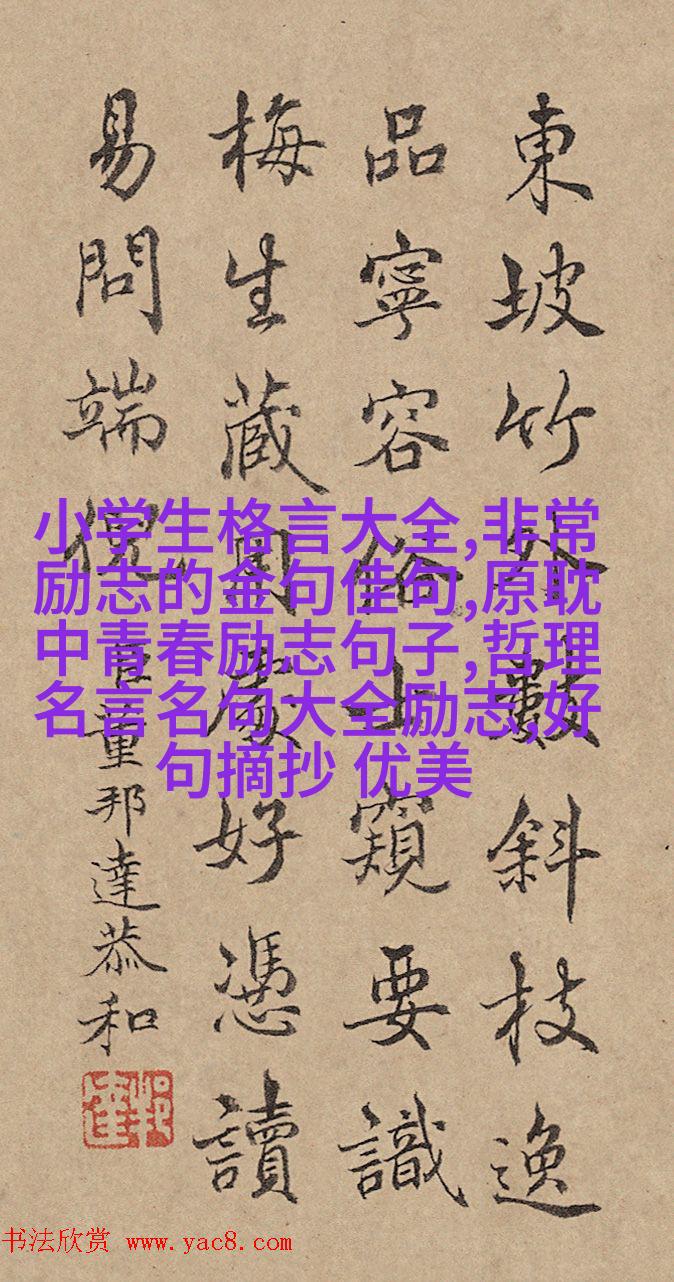 東坡竹外數斜枝逸
品寧容俗士窺要識
梅生藏用處好憑讀
易問端倪臣董邦達恭和
小学生格言大全,非常
励志的金句佳句,原耽
中青春励志句子,哲理
名言名句大全励志,好
句摘抄 优美
书法欣赏 www.yac8.com